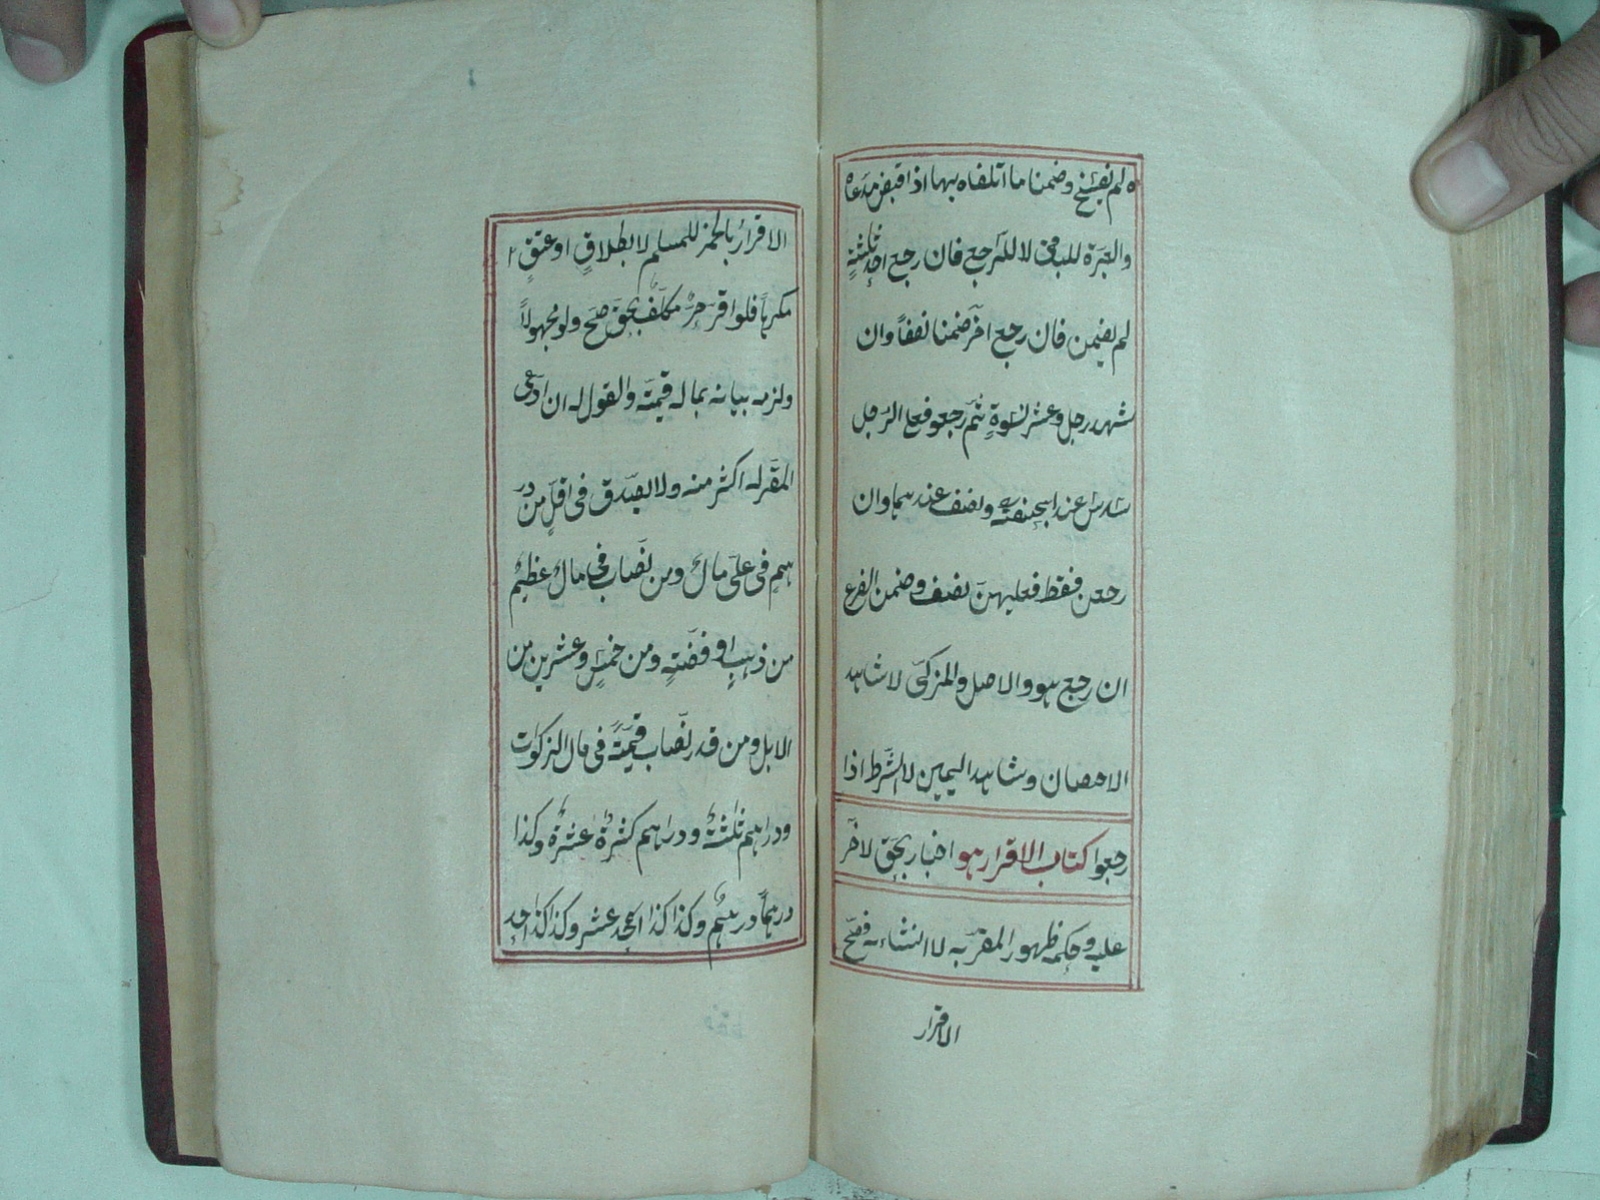 ه لم يفسخ وضمنا ما اتلفاه بها اذا قبض مدعاه
والعبرة للباقى لا للراجع فان رجع احد ثلثة
لم يضمن فان رجع اخر ضمنا نصفا وان
شهد رجل وعشر نسوة ثم رجعو فعلى الرجل
سدس عند ابيحنيفة ونصف عندهما وان
رجعن فقط فعليهن نصف وضمن الفرع
ان رجع هو والاصل والمزكى لا شاهد
الاحصان وشاهد اليمين لا الشرط اذا
رجعوا كتاب الاقرار هو اخبار بحق لاخر
عليه وحكمه ظهور المقر به لا انشاءه فصح
الاقرار
الاقرار بالخمر للمسلم لا بطلاق او عتق
مكرها فلو اقر حر مكلف بحق صح ولو مجهولا
ولزمه بيانه بما له قيمة والقول له ان ادعى
المقر له اكثر منه ولا يصدق فى اقل من در
هم فى على مال ومن نصاب فى مال عظيم
من ذهب او فضة ومن خمس وعشرين من
الابل ومن قدر نصاب قيمة فى مال الزكوات
ودراهم ثلثة ودراهم كثيرة عشرة وكذا
درهما درهم وكذا كذا احد عشر وكذا كذا احد